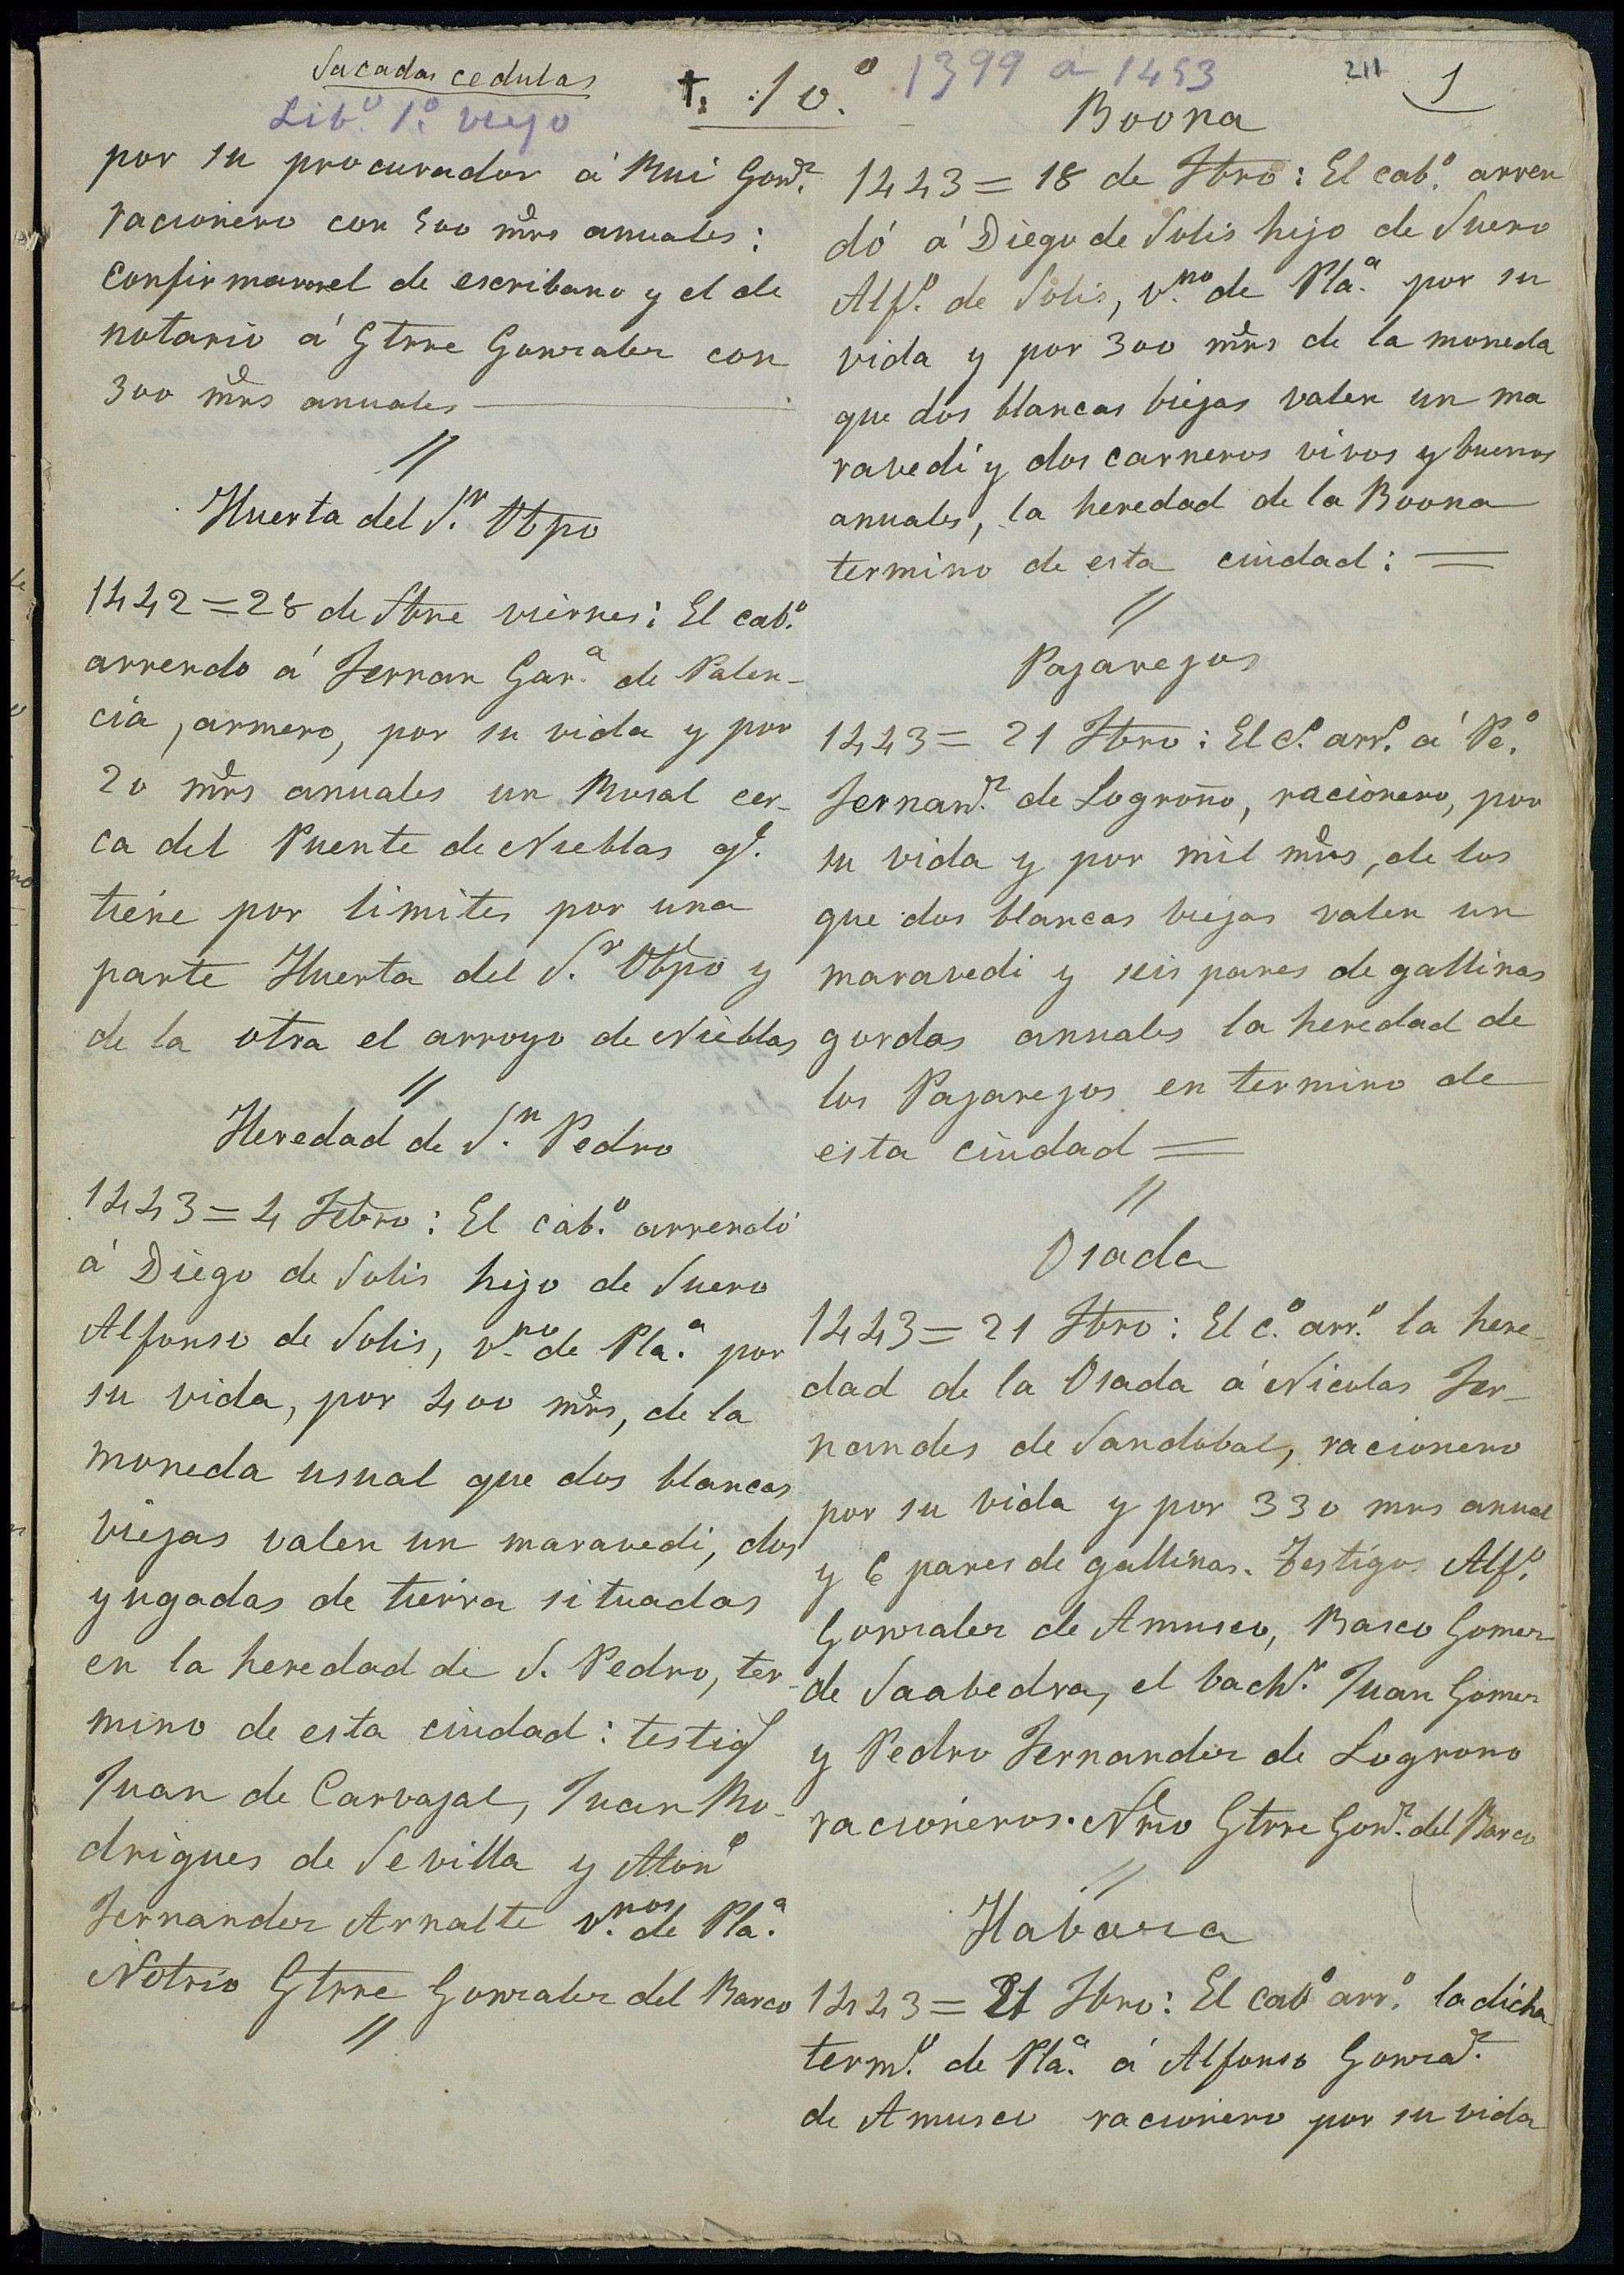 Sacadas cedulas
Lib.º 1.º viejo
t. 10.º
1399 a 1453
211
1
por su procurador á Rui Gonz.
racionero con 500 mrs anuales:
confirmaronel de escribano y el de
notario á Gtrre Gonzalez con
300 mrs anuales
//
Huerta del S.r Obpo
1442 = 28 de Stbre viernes: El cab.º
arrendo á Fernan Gar.ª de Palen-
cia, armero, por su vida y por
20 mrs anuales un Rosal cer-
ca del Puente de Nieblas q.e
tiene por limites por una
parte Huerta del S.r Obpo y
de la otra el arroyo de Nieblas
//
Heredad de S.n Pedro
1443 = 4 Febro: El cab.º arrendó
á Diego de Solis hijo de Suero
Alfonso de Solis, v.no de Pla.ª por
su vida, por 400 mrs, de la
moneda usual que dos blancas
viejas valen un maravedi, dos
yugadas de tierra situadas
en la heredad de S. Pedro, ter-
mino de esta ciudad: testig
Juan de Carvajal, Juan Ro-
drigues de Sevilla y Alonº
Fernandez Arnalte v.nos de Pla.ª
Notrio Gtrre Gonzalez del Barco
//
Boona
1443 = 18 de Fbro: El cab.º arren
dó á Diego de Solis hijo de Suero
Alf.º de Solis, v.no de Pla.ª por su
vida y por 300 mrs de la moneda
que dos blancas biejas valen un ma
ravedí y dos carneros vivos y buenos
anuales, la heredad de la Boona
termino de esta ciudad: =
//
Pajarejos
1443 = 21 Fbro: El c.º arr.º á Pe.º
Fernand.z de Logroño, racionero, por
su vida y por mil mrs, de los
que dos blancas biejas valen un
maravedi y seis pares de gallinas
gordas anuales la heredad de
los Pajarejos en termino de
esta ciudad =
//
Osada
1443 = 21 Fbro: El c.º arr.º la here-
dad de la Osada á Nicolas Fer-
nandes de Sandobal, racionero
por su vida y por 330 mrs anual
y 6 pares de gallinas. Testigos Alf.º
Gonzalez de Amusco, Basco Gomez
de Saabedra, el bach.r Juan Gomez
y Pedro Fernandez de Logrono
racioneros. Nrio Gtrre Gonz. del Barco
//
Habaza
1443 = 21 Fbro: El cabº arr.º la dicha
term.º de Pla.ª á Alfonso Gonza.z
de Amusco racionero por su vida